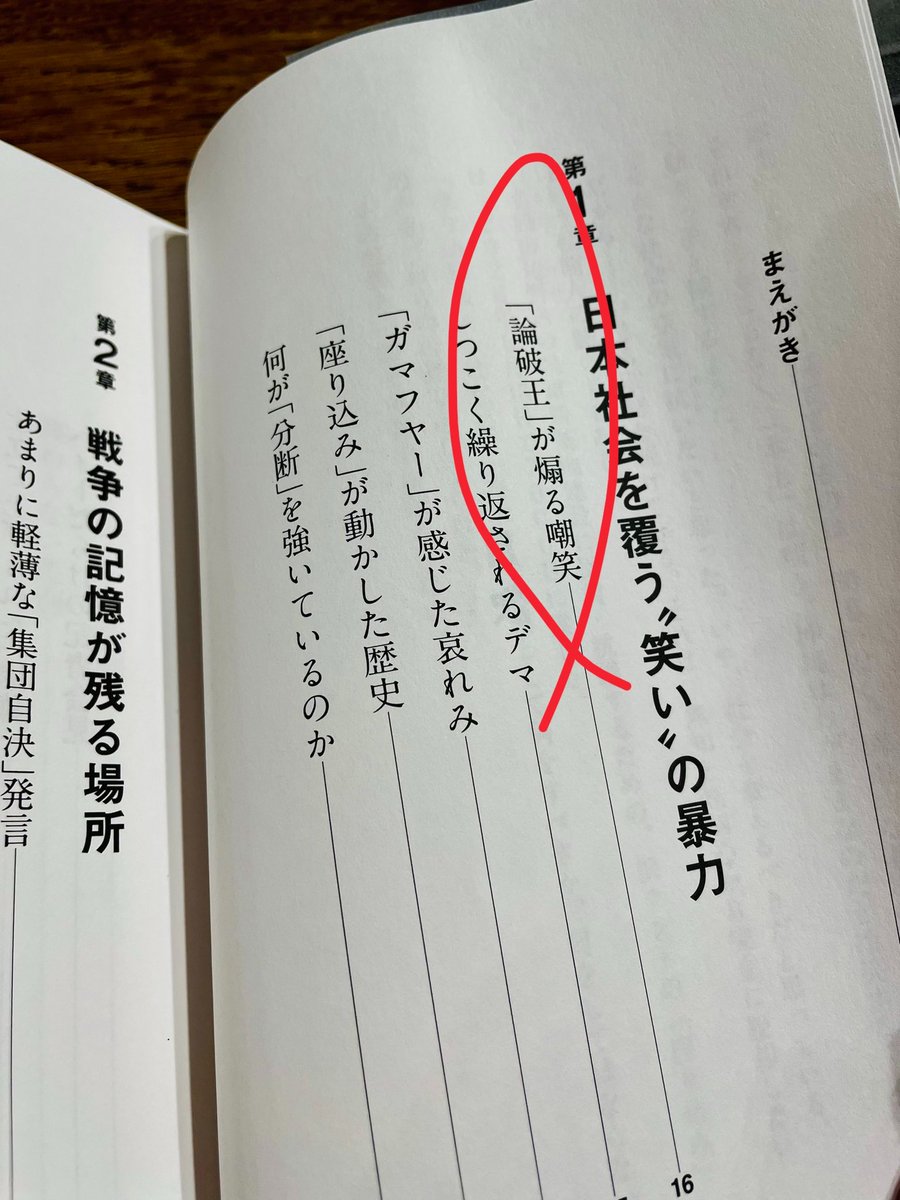 まえがき
第1章 日本社会を覆う〝笑い〟の暴力
「論破王」が煽る嘲笑
しつこく繰り返されるデマ
「ガマフヤー」が感じた哀れみ
「座り込み」が動かした歴史
何が「分断」を強いているのか
16
第2章 戦争の記憶が残る場所
あまりに軽薄な「集団自決」発言